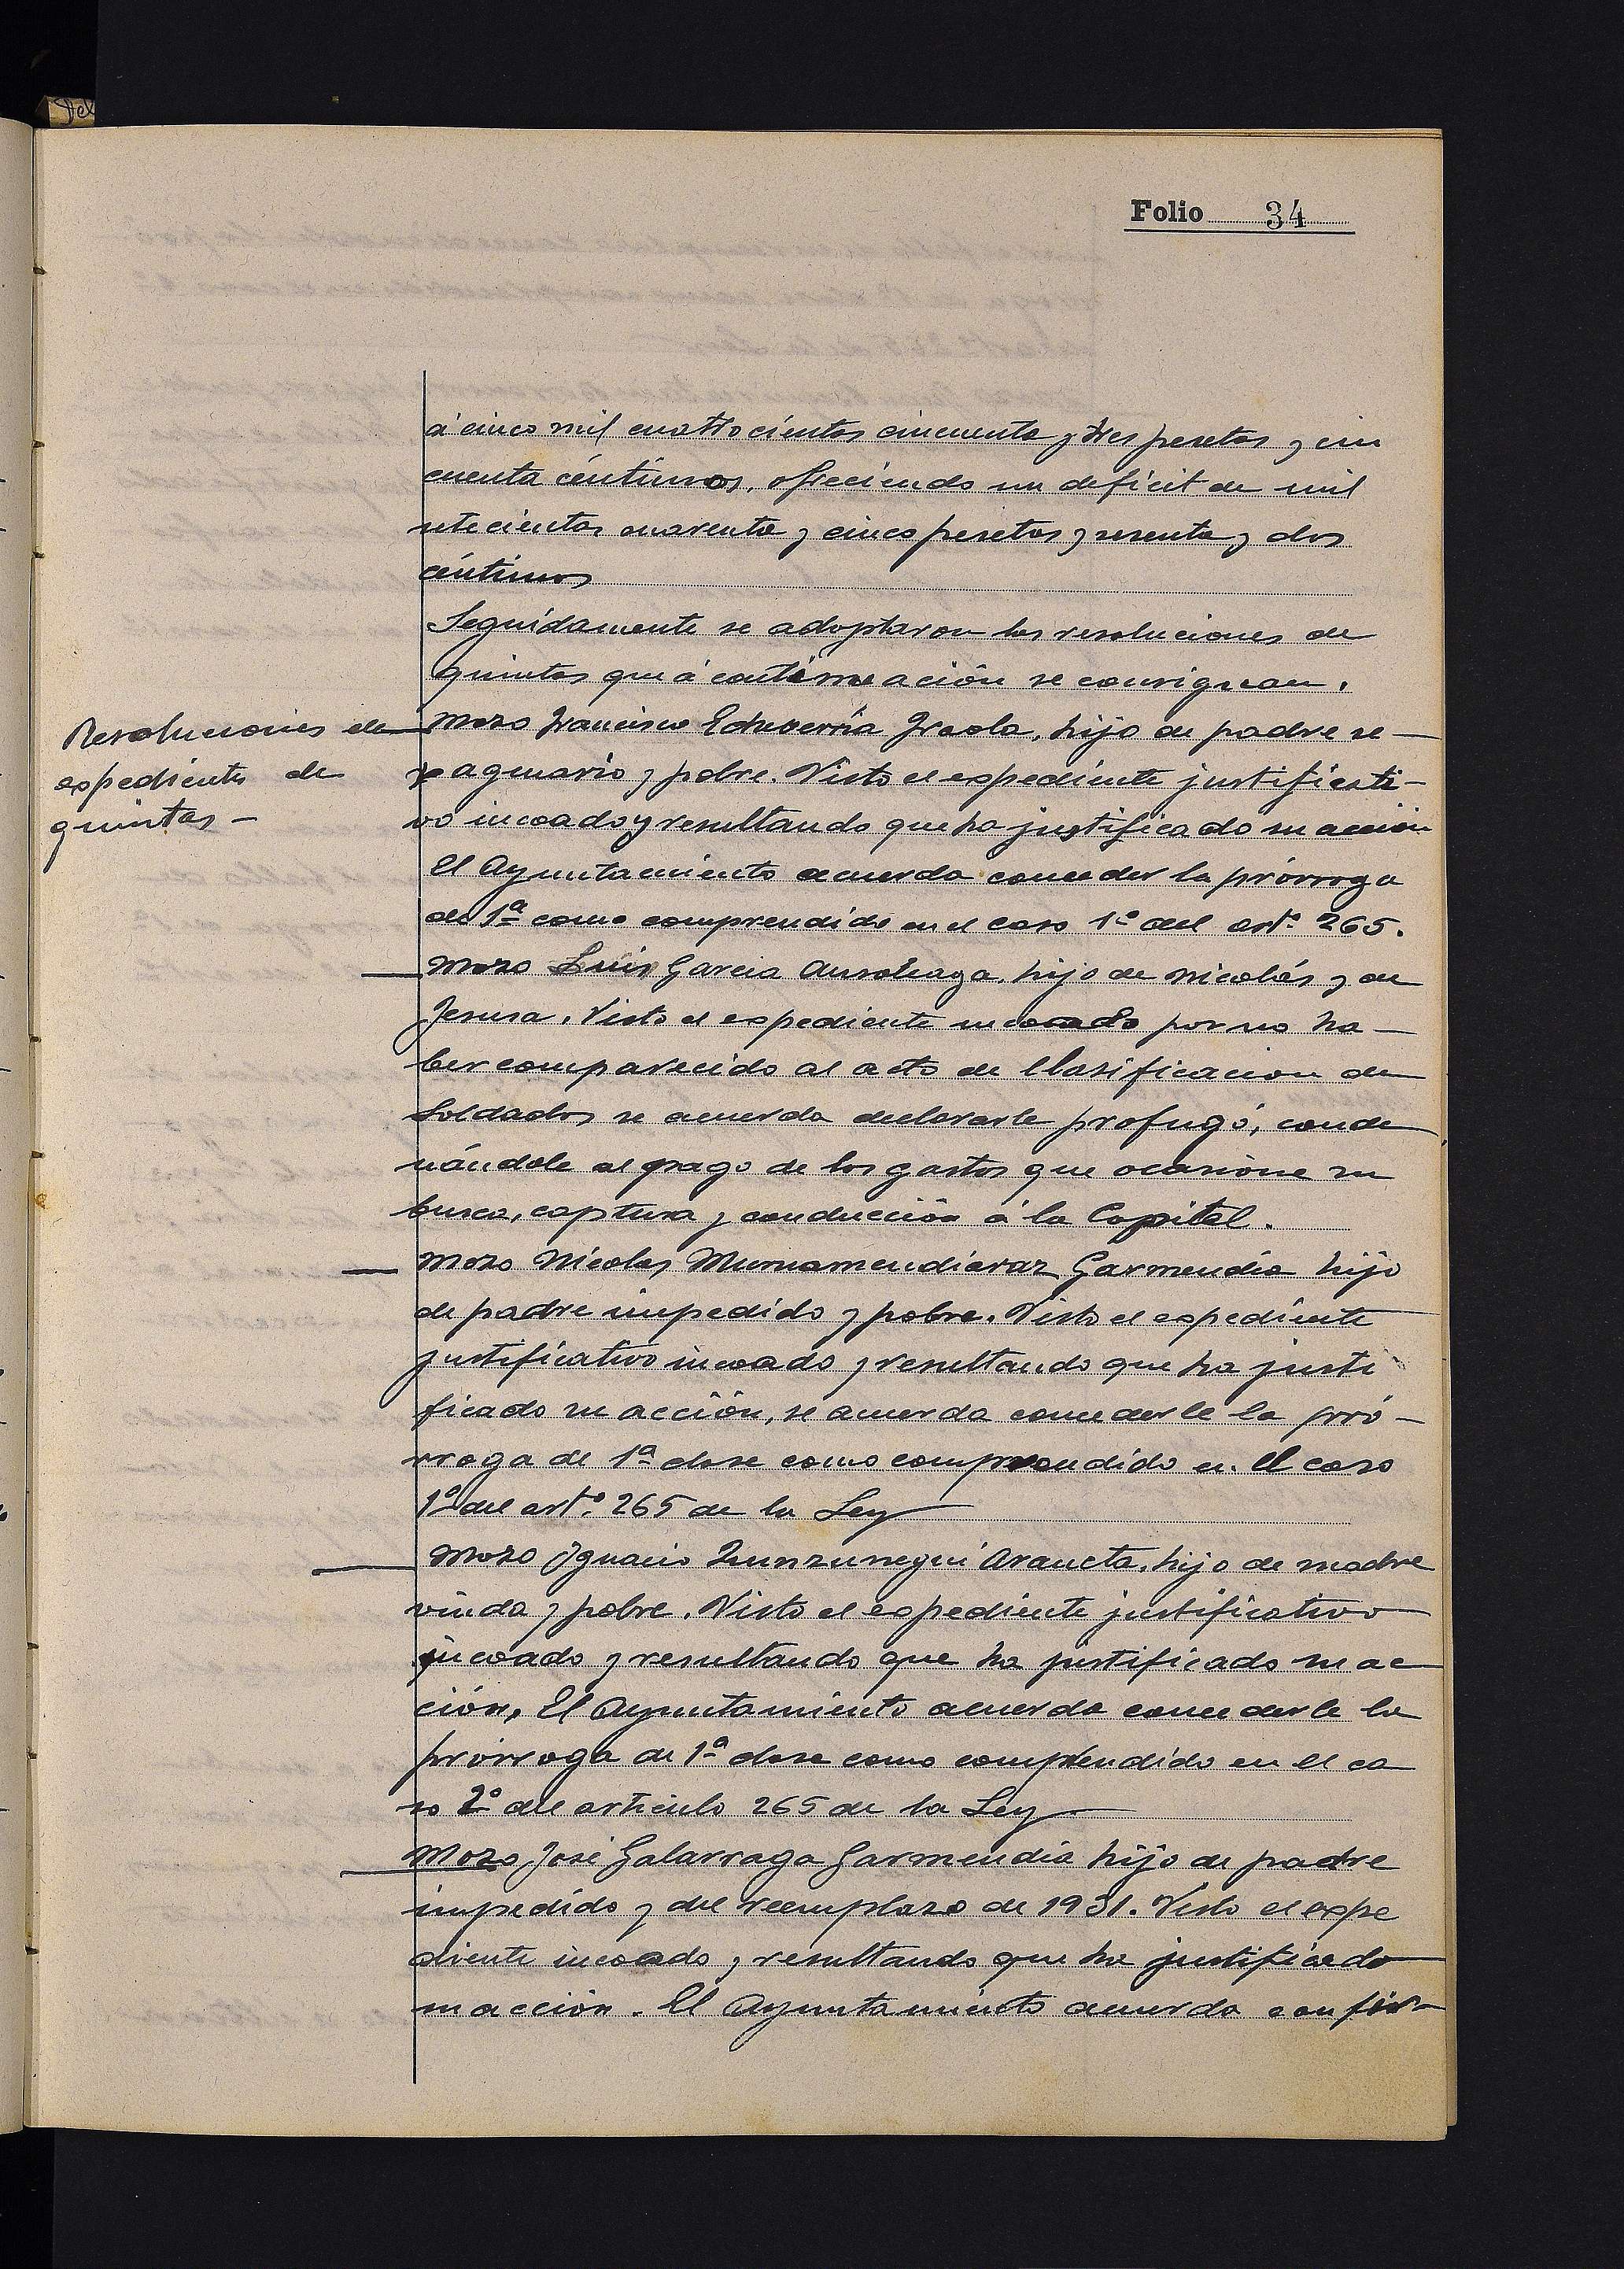 Folio 34
á cinco mil cuatrocientas cincuenta y tres pesetas y cin
cuenta céntimos, ofreciendo un deficit de mil
setecientas cuarenta y cinco pesetas y sesenta y dos
céntimos
Seguidamente se adoptaron las resoluciones de
quintas que á continuación se consignan.
Resoluciones de
expedientes de
quintas -
Mozo Francisco Echeverria Iraola, hijo de padre se-
xagenario y pobre. Visto el expediente justificati-
vo incoado y resultando que ha justificado su acción
El Ayuntamiento acuerda conceder la prórroga
de 1ª como comprendido en el caso 1º del artº. 265.
Mozo Luis Garcia hijo de Nicolás y de
Jesusa. Visto el expediente incoado por no ha-
ber comparecido al acto de Clasificacion de
Soldados se acuerda declararle profugó, conde
nándole al pago de los gastos que ocasione su
busca, captura y conducción á la Capital.
Mozo Nicolas Murnamendiaraz Garmendia hijo
de padre impedido y pobre. Visto el expediente
justificativo incoado y resultando que ha justi
ficado su acción, se acuerda concederle la pró-
rroga de 1ª clase como comprendido en el caso
1º del artº. 265 de la Ley
Mozo Ignacio Zunzunegui Araneta, hijo de madre
viuda y pobre. Visto el expediente justificativo
incoado y resultando que ha justificado su ac
ción, El Ayuntamiento acuerda concederle la
prórroga de 1ª clase como comprendido en el ca
so 2º del articulo 265 de la Ley
Mozo José Galarraga Garmendia hijo de padre
impedido y del reemplazo de 1931. Visto el expe
diente incoado y resultando que ha justificado
su acción. El Ayuntamiento acuerda confir-